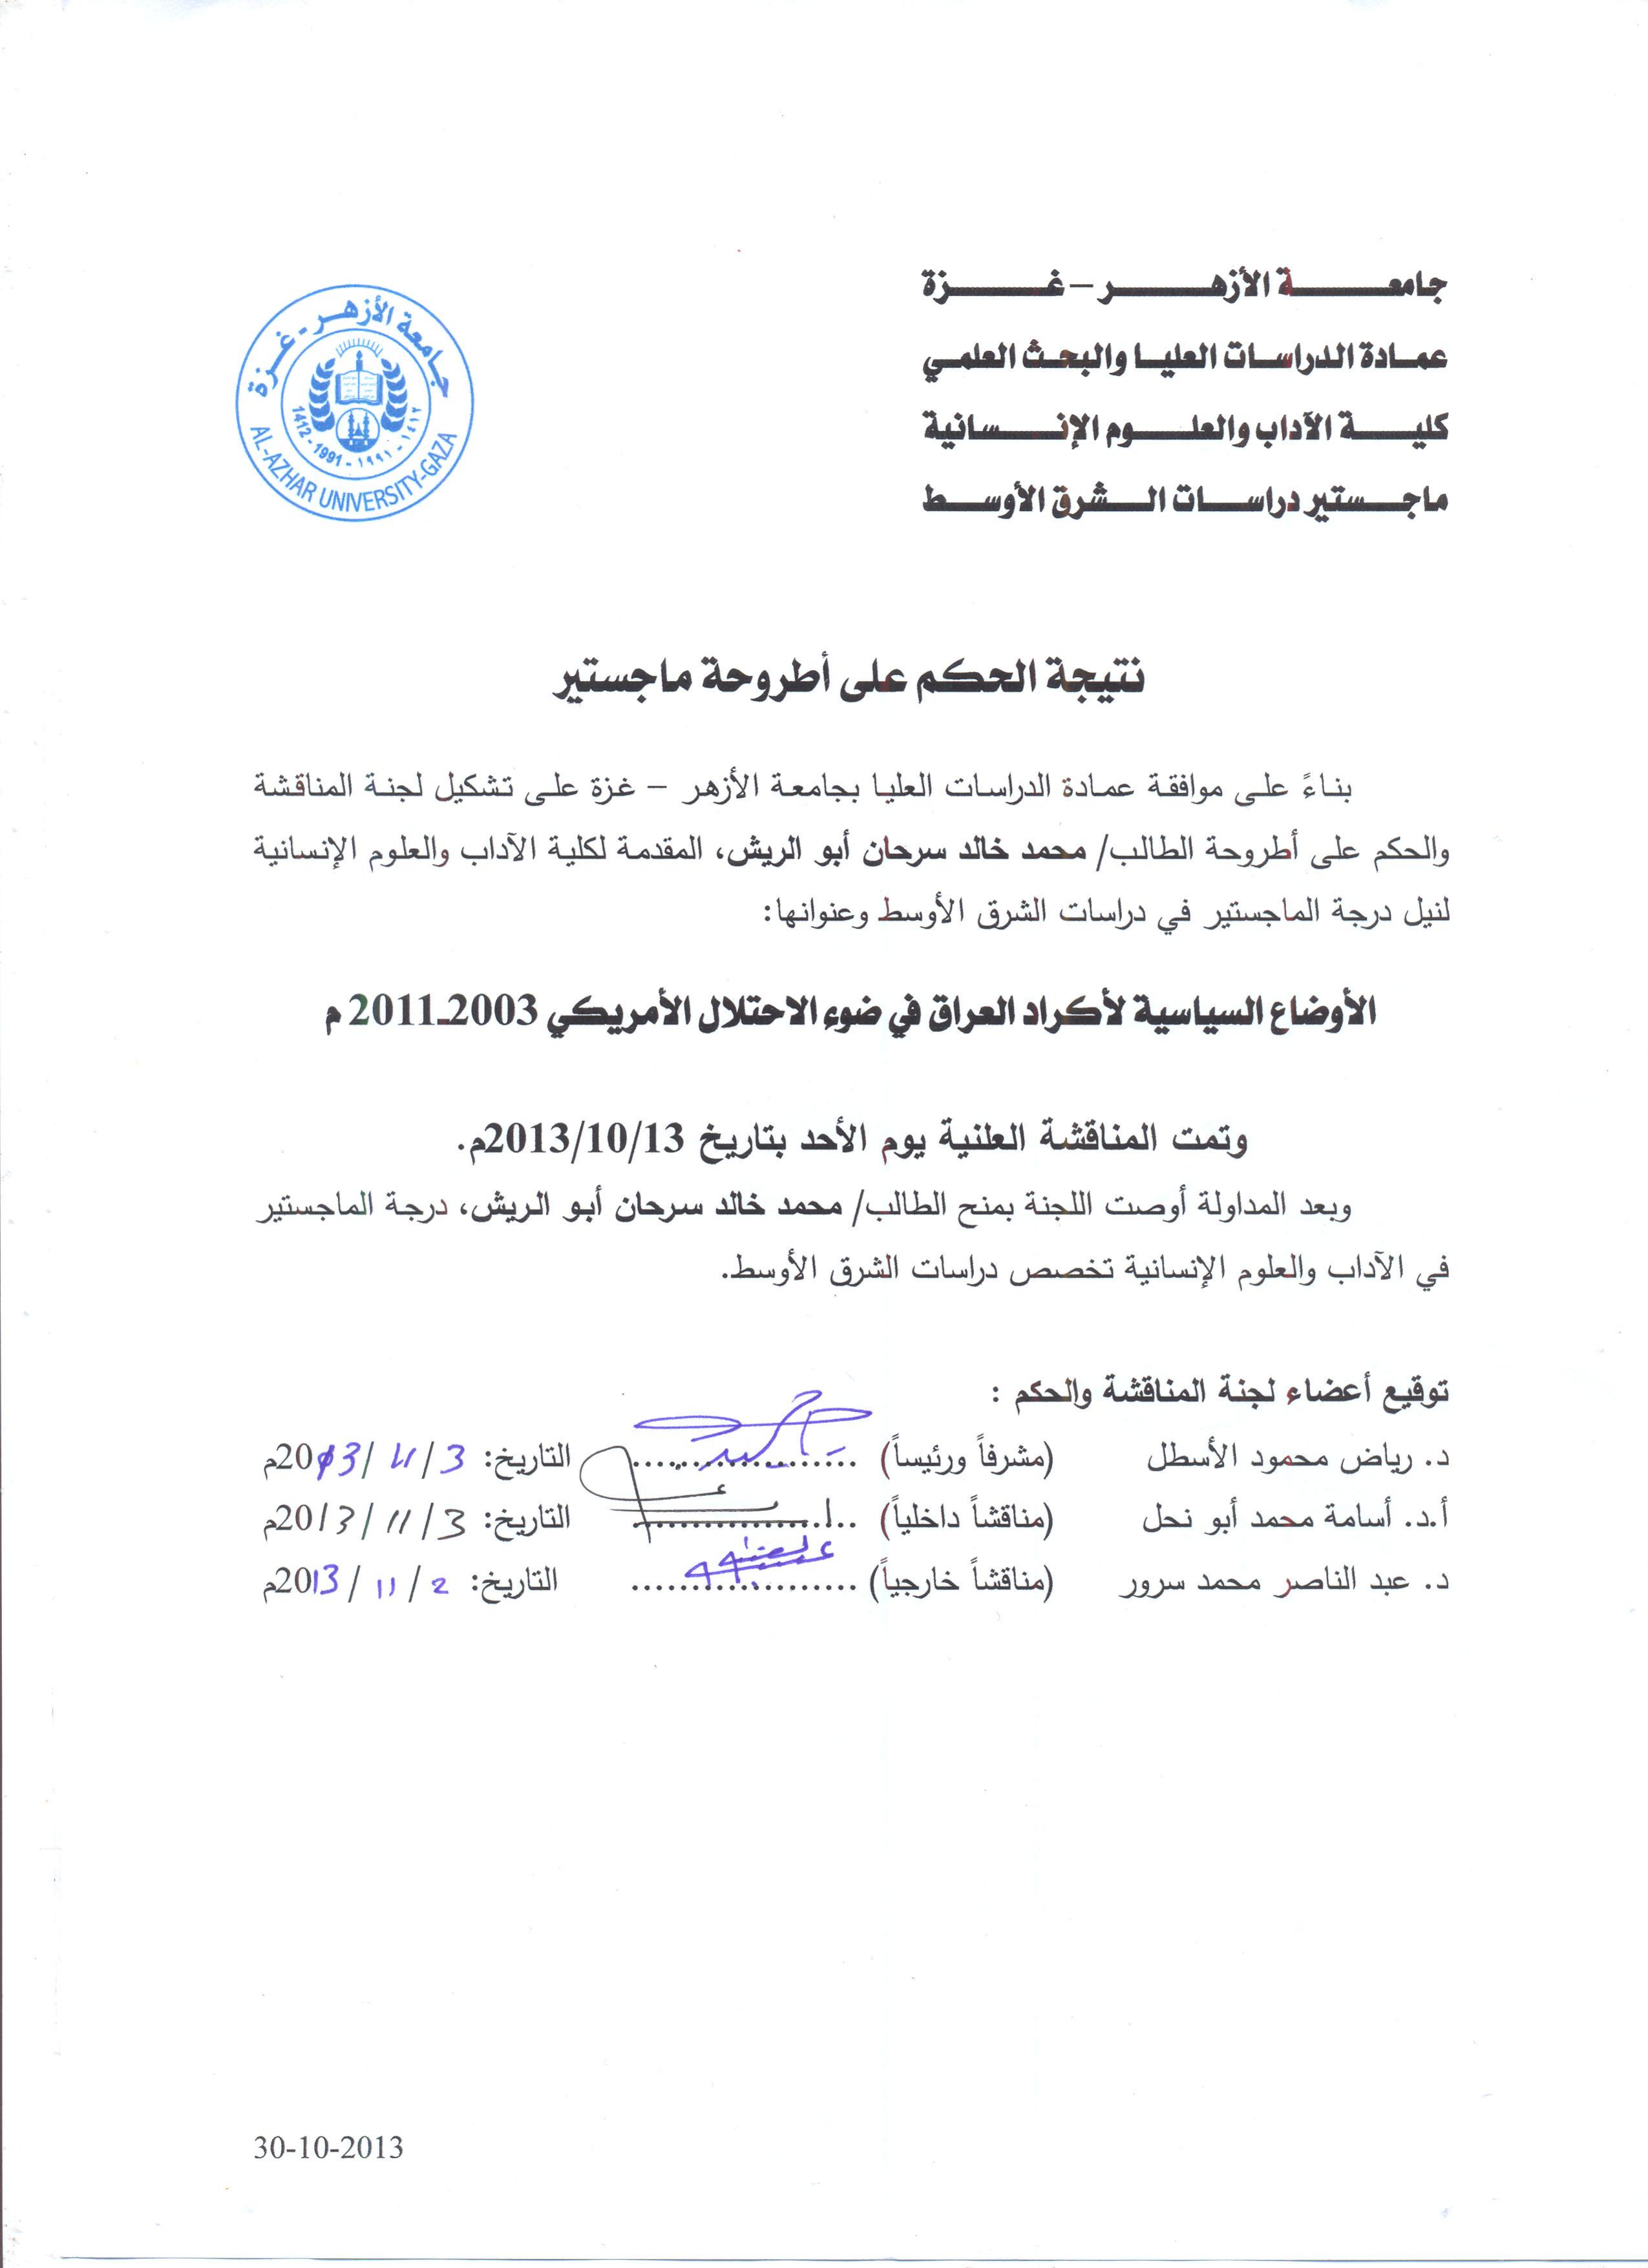 جامعة الأزهر – غزة
عمادة الدراسات العليا والبحث العلمي
كلية الآداب والعلوم الإنسانية
ماجستير دراسات الشرق الأوسط
جامعة الأزهر - غزة
١٤١٢ - ١٩٩١ - 1991 - 1412
AL-AZHAR UNIVERSITY-GAZA
نتيجة الحكم على أطروحة ماجستير
بناءً على موافقة عمادة الدراسات العليا بجامعة الأزهر – غزة على تشكيل لجنة المناقشة
والحكم على أطروحة الطالب/ محمد خالد سرحان أبو الريش، المقدمة لكلية الآداب والعلوم الإنسانية
لنيل درجة الماجستير في دراسات الشرق الأوسط وعنوانها:
الأوضاع السياسية لأكراد العراق في ضوء الاحتلال الأمريكي 2003-2011 م
وتمت المناقشة العلنية يوم الأحد بتاريخ 2013/10/13م.
وبعد المداولة أوصت اللجنة بمنح الطالب/ محمد خالد سرحان أبو الريش، درجة الماجستير
في الآداب والعلوم الإنسانية تخصص دراسات الشرق الأوسط.
توقيع أعضاء لجنة المناقشة والحكم :
د. رياض محمود الأسطل (مشرفاً ورئيساً) .................... التاريخ: 3 / 11 / 2013م
أ.د. أسامة محمد أبو نحل (مناقشاً داخلياً) .................... التاريخ: 3 / 11 / 2013م
د. عبد الناصر محمد سرور (مناقشاً خارجياً) .................... التاريخ: 2 / 11 / 2013م
30-10-2013